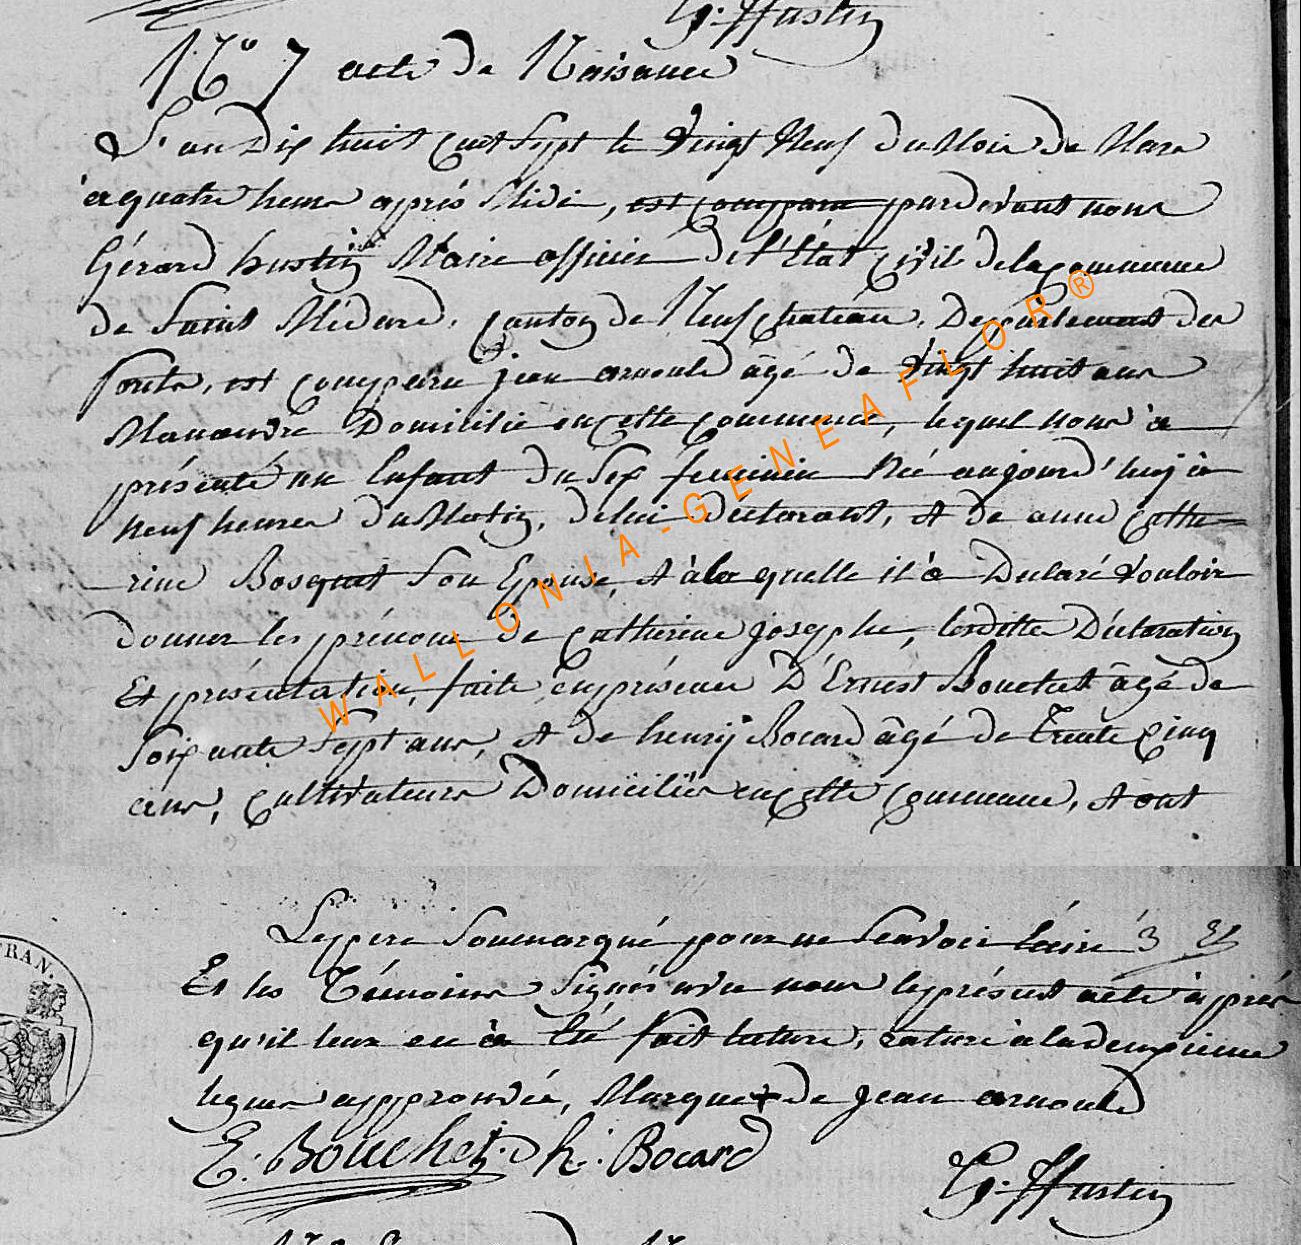 G. Hustin
N.° 7 acte de Naisance
L'an Dix huit cent Sept le vingt Neuf du Mois de Mars
à quatre heure après Midi, est comparu pardevant nous
Gérard hustin Maire officier de l'État civil de la commune
de Saint Médard, canton de Neufchateau, Departement des
forets, est comparu jean arnould âgé de vingt huit ans
Manoeuvre Domicilié en cette commune, lequel nous à
présenté un Enfant du Sex féminin Né aujourd'huj à
neuf heures du Matin, de lui déclarant, et de anne cathe=
rine Bosquet Son Epouse, et à la quelle il à Déclaré vouloir
donner les prénoms de catherine josephe, lesdittes Déclaration
Et présentation, faite en présence D'Ernest Bouchet âgé de
Soixante Sept ans, et de henrij Bocard âgé de Trente Cinq
ans, cultivateurs Domiciliés en cette commune, et ont
Le pere Soumarqué pour ne Scavoir écrire 3 Et
TRAN.
Et les Témoins Signés avec nous le présent acte après
qu'il leur en à été fait lecture, rature à la deuxieme
ligne approuvée, Marque + de Jean arnould
E. Bouchet h. Bocard
G. Hustin
WALLONIA-GENEAFLOR®